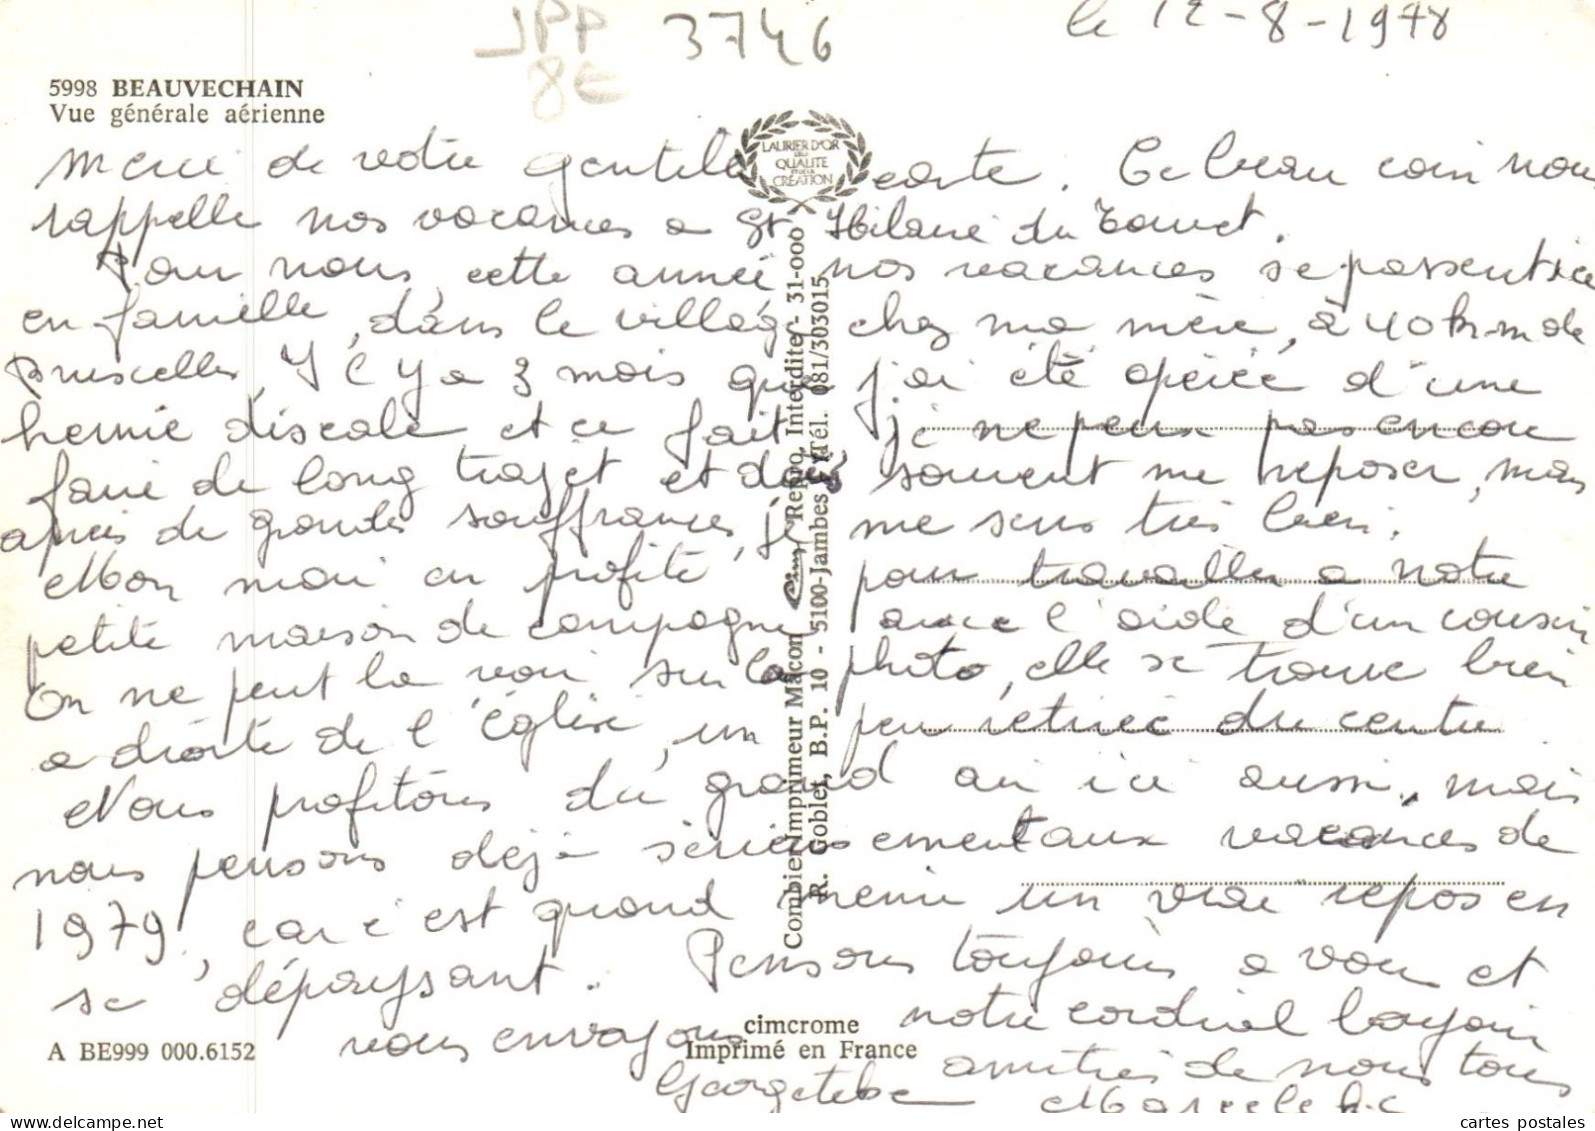 le 12-8-1978
JPP 3746
8E
5998 BEAUVECHAIN
Vue générale aérienne
LAURIER D'OR
DE LA
QUALITE
ET DE LA
CREATION
Merci de votre gentille carte. Ce beau coin nous
rappelle nos vacances a St Hilaire du Touvet.
Pour nous, cette année nos vacances se passent ici
en famille, dans le village chez ma mère, à 40 km de
Bruxelles. Il y a 3 mois que j'ai été opérée d'une
hernie discale et ce fait je ne peux pas encore
faire de long trajet et dois souvent me reposer, mais
après de grandes souffrances, je me sens très bien.
Mon mari en profite pour travailler a notre
petite maison de campagne avec l'aide d'un cousin
On ne peut la voir sur la photo, elle se trouve bien
a droite de l'église, un peu retirée du centre
Nous profitons du grand air ici aussi, mais
nous pensons déjà sérieusement aux vacances de
1979, car c'est quand même un vrai repos en
se dépaysant. Pensons toujours a vous et
vous envoyons notre cordial bonjour
amitiés de nous tous
Georgette Marcel
Combier Imprimeur Macon Cim Repro. Interdite - 31-000
R. Goblet, B.P. 10 - 5100-Jambes Tél. 081/303015
cimcrome
Imprimé en France
A BE999 000.6152
cartes postales